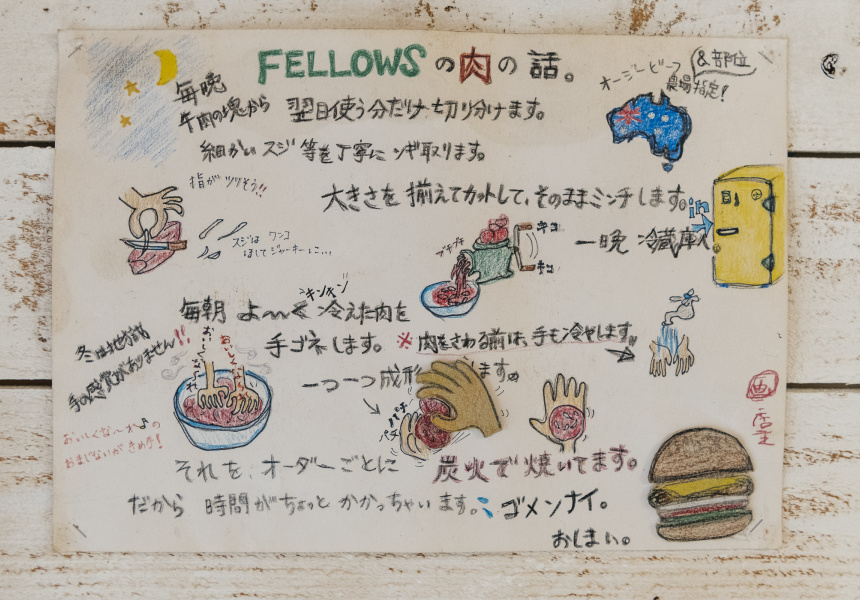 FELLOWSの肉の話。
オージービーフ
&部位
農場指定!
毎晩
牛肉の塊から 翌日使う分だけ切り分けます。
細かい スジ 等を丁寧に ソギ取ります。
指がツリそう!!
大きさを揃えてカットして、そのままミンチします。
in
一晩 冷蔵庫へ
スジは ワンコ
ほしてジャーキーに…
ブチブチ
キコ
キコ
キンキン
毎朝 よ〜く冷えた肉を
手ゴネします。 ※肉をさわる前は、手も冷やします。
冬は地獄
手の感覚がありません!!
おいしくなーれ
おいしくなーれ
一つ一つ成形 ます。
パチ
パチ
おいしくな〜れ♪の
おまじないがきめ手!
画
店主
それを オーダーごとに 炭火で焼いてます。
だから 時間がちょっと かかっちゃいます。ゴメンナイ。
おしまい。